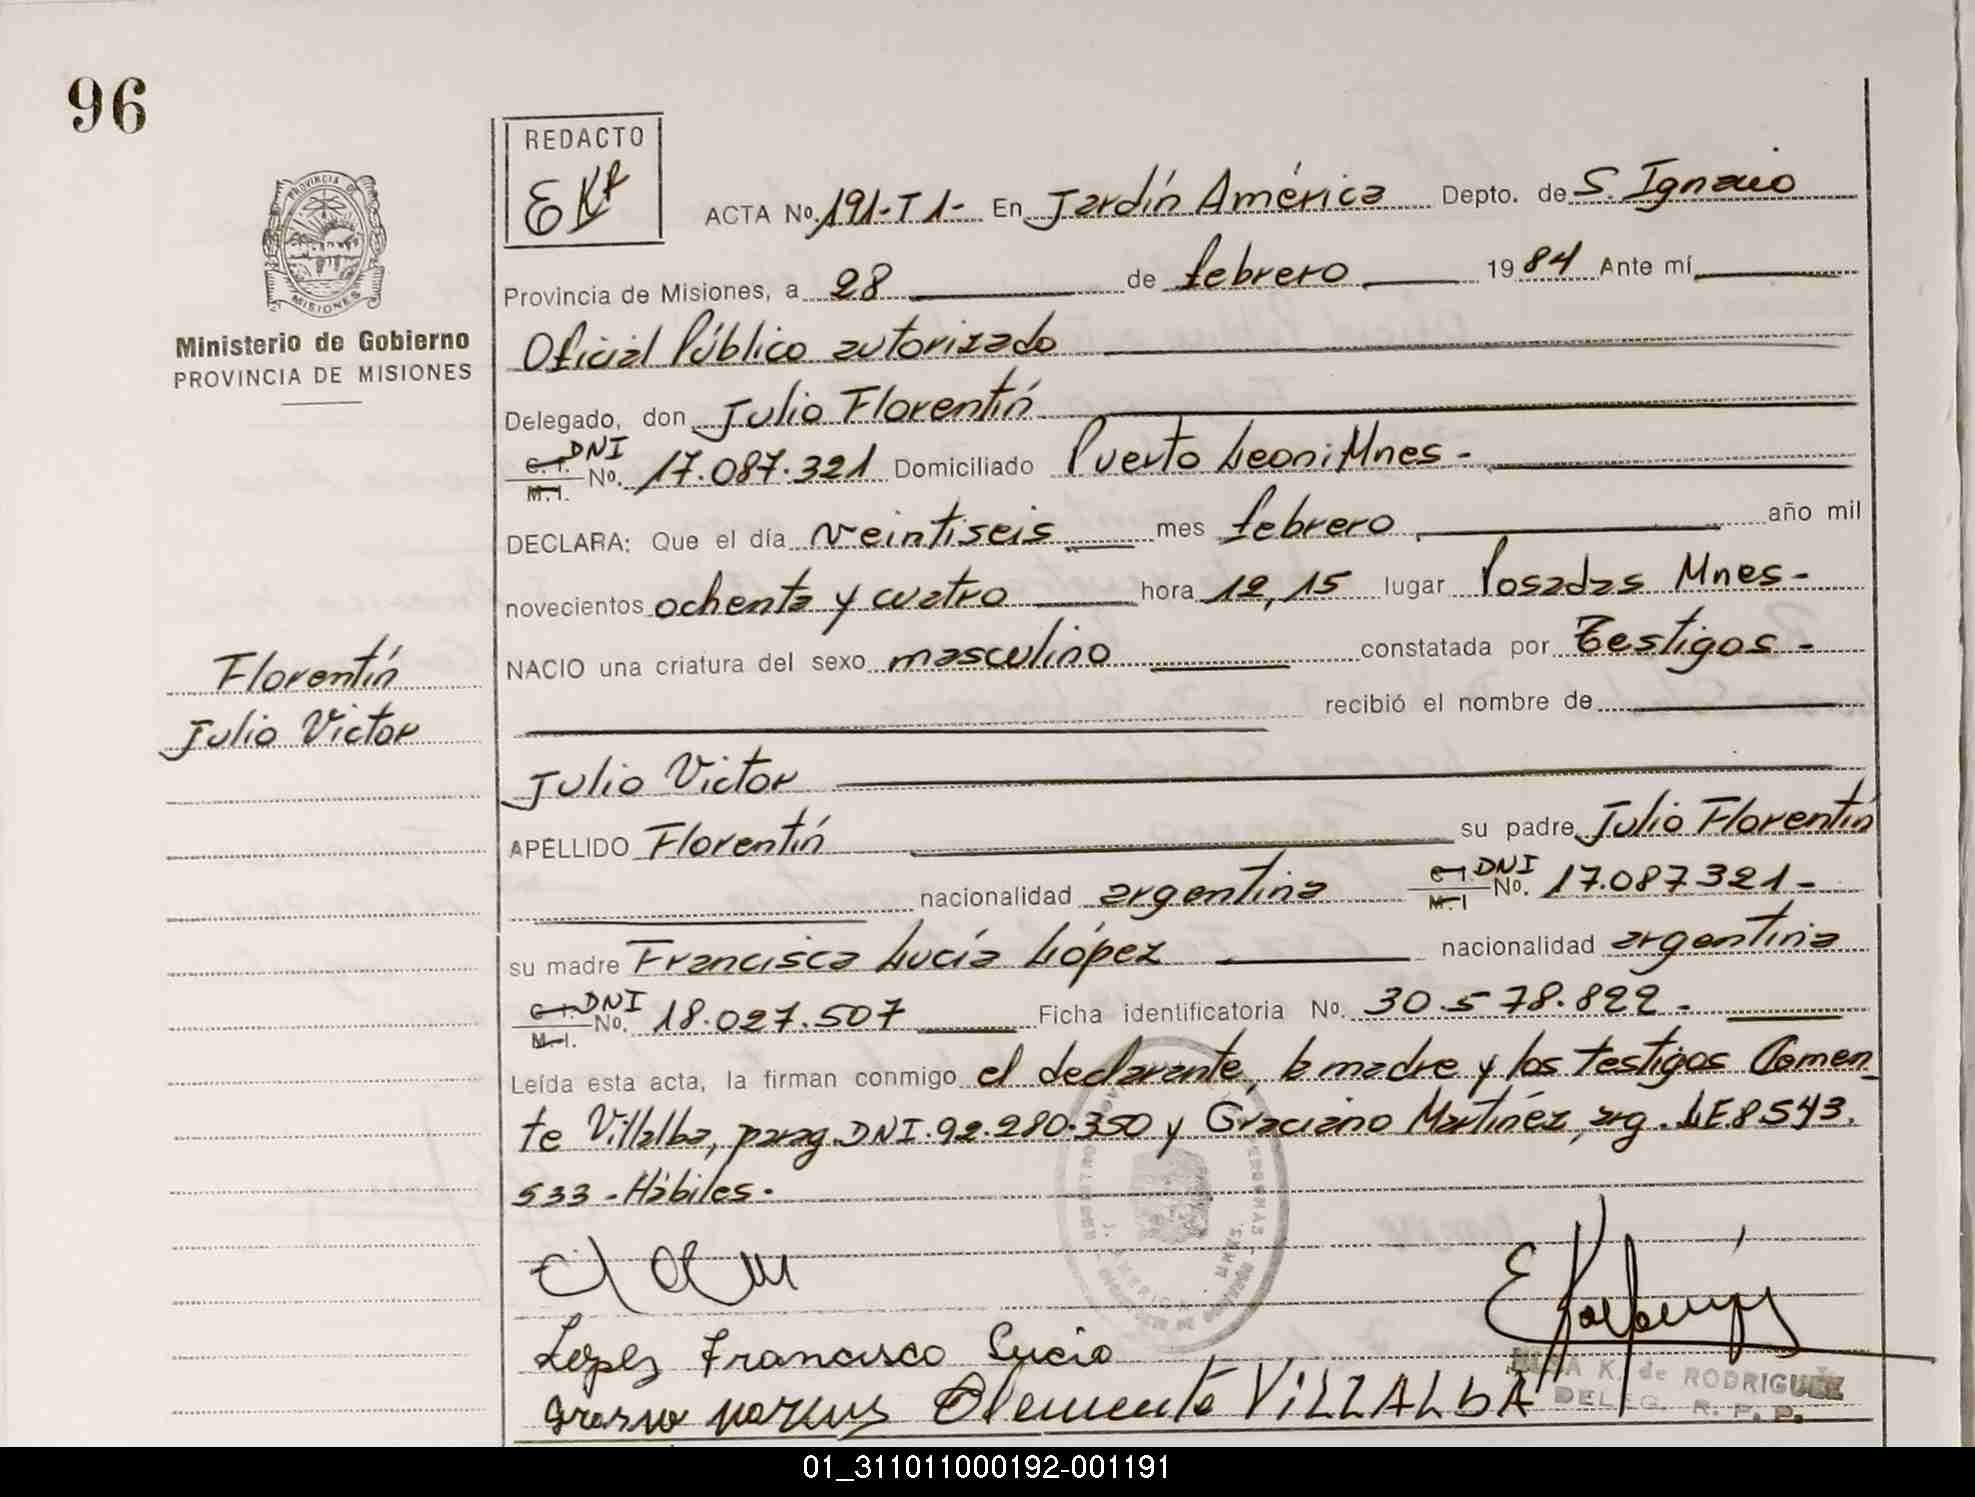 96
REDACTO
EKr
PROVINCIA DE
MISIONES
Ministerio de Gobierno
PROVINCIA DE MISIONES
ACTA No. 191-T1- En Jardín América Depto. de S. Ignacio
Provincia de Misiones, a 28 de febrero 1984 Ante mí
Oficial Público autorizado
Delegado, don Julio Florentín
C. I. DNI
M. I. No. 17.087.321 Domiciliado Puerto Leoni Mnes -
DECLARA: Que el día veintiseis mes febrero año mil
novecientos ochenta y cuatro hora 12,15 lugar Posadas Mnes-
NACIO una criatura del sexo masculino constatada por Testigos -
recibió el nombre de
Florentín
Julio Victor
Julio Victor
APELLIDO Florentín su padre Julio Florentín
nacionalidad argentina C I DNI M. I No. 17.087.321-
su madre Francisca Lucía López nacionalidad argentina
C. I. DNI M. I. No. 18.027.507 Ficha identificatoria No. 30.578.822 -
Leída esta acta, la firman conmigo el declarante, la madre y los testigos Clemen-
te Villalba, parag. DNI. 92.280.350 y Graciano Martínez, arg. LE 8543.
533 - Hábiles.
Lopez Francisca Lucia
Clemente ViLLALbA
K. de RODRIGUEZ
DELEG. R. P. P.
01_311011000192-001191